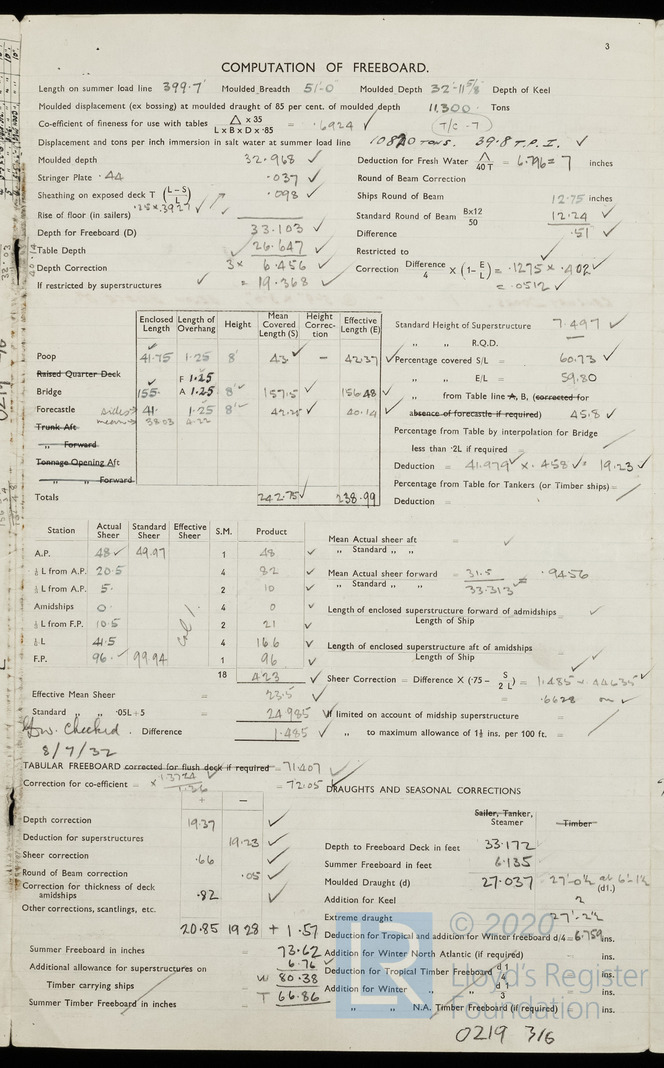 3
COMPUTATION OF FREEBOARD.
Length on summer load line 399.7' Moulded Breadth 51'-0" Moulded Depth 32'-11 5/8" Depth of Keel
Moulded displacement (ex bossing) at moulded draught of 85 per cent. of moulded depth 11,300 Tons
Co-efficient of fineness for use with tables △ x 35 / L x B x D x ·85 = ·6924 ✓ (T/C -7)
Displacement and tons per inch immersion in salt water at summer load line 10820 Tons. 39.8 T.P.I. ✓
Moulded depth 32.968 ✓
Stringer Plate ·44 ·037 ✓
Sheathing on exposed deck T (L-S / L) ·098 ✓
·25 x .3927 ✓
Rise of floor (in sailers)
Depth for Freeboard (D) 33.103 ✓
Table Depth 26.647 ✓
Depth Correction 3 x 6.456 ✓
If restricted by superstructures ✓ = 19.368 ✓
Deduction for Fresh Water △ / 40T = 6.796 = 7 inches
Round of Beam Correction
Ships Round of Beam 12.75 inches
Standard Round of Beam Bx12 / 50 12.24 ✓
Difference ·51 ✓
Restricted to
Correction Difference / 4 X (1- E / L) = ·1275 x ·402 ✓
= ·0512 ✓
Enclosed Length Length of Overhang Height Mean Covered Length (S) Height Correction Effective Length (E)
Poop 41.75 1.25 8' 43 ✓ — 42.37 ✓
Raised Quarter Deck F 1.25
Bridge 155· A 1.25 8' ✓ 157.5 ✓ 156.48 ✓
Forecastle sides 41· 1.25 8' ✓ 42.25 ✓ 40.14 ✓
Trunk Aft mean 38.03 4.22
„ Forward
Tonnage Opening Aft
„ „ Forward
Totals 242.75 238.99
Standard Height of Superstructure 7.497 ✓
„ „ R.Q.D.
Percentage covered S/L = 60.73 ✓
„ „ E/L = 59.80
„ from Table line A, B, (corrected for
absence of forecastle if required) 45.8 ✓
Percentage from Table by interpolation for Bridge
less than ·2L if required =
Deduction = 41.979 ✓ x ·458 ✓ = 19.23 ✓
Percentage from Table for Tankers (or Timber ships) =
Deduction =
Station Actual Sheer Standard Sheer Effective Sheer S.M. Product
A.P. 48 ✓ 49.97 1 48 ✓
⅙ L from A.P. 20.5 4 82 ✓
⅓ L from A.P. 5· 2 10 ✓
Amidships 0 4 0 ✓
⅓ L from F.P. 10.5 2 21 ✓
⅙ L 41.5 4 166 ✓
F.P. 96· ✓ 99.94 1 96 ✓
18 423 ✓
Effective Mean Sheer = 23.5 ✓
Standard „ „ ·05L+5 = 24.985 ✓
Difference = 1.485 ✓
Checked.
8/7/32
Mean Actual sheer aft = ✓
„ Standard „ „
Mean Actual sheer forward = 31.5 / 33.313 = ·9456
„ Standard „ „
Length of enclosed superstructure forward of admidships / Length of Ship = ✓
Length of enclosed superstructure aft of amidships / Length of Ship = ✓
Sheer Correction = Difference X (·75 - S / 2L) = 1.485 x ·44635 ✓
= ·6628 ✓
If limited on account of midship superstructure =
„ to maximum allowance of 1½ ins. per 100 ft. =
TABULAR FREEBOARD corrected for flush deck if required = 71.407 ✓
Correction for co-efficient = x 1.3724 / 1.36 = 72.05 ✓
+ —
Depth correction 19.37 ✓
Deduction for superstructures 19.23 ✓
Sheer correction ·66 ✓
Round of Beam correction ·05 ✓
Correction for thickness of deck amidships ·82 ✓
Other corrections, scantlings, etc.
20.85 19 28 + 1.57
Summer Freeboard in inches = 73.62
Additional allowance for superstructures on 6.76 ✓
Timber carrying ships = W 80.38
Summer Timber Freeboard in inches = T 66.86
DRAUGHTS AND SEASONAL CORRECTIONS
Sailer, Tanker, Steamer Timber
Depth to Freeboard Deck in feet 33.172
Summer Freeboard in feet 6.135
Moulded Draught (d) 27.037 27'-0½ at 6'-1½ (d1.)
Addition for Keel 2
Extreme draught 27'-2½
Deduction for Tropical and addition for Winter freeboard d/4 = 6.759 ins.
Addition for Winter North Atlantic (if required) - ins.
Deduction for Tropical Timber Freeboard d1 / 4 ins.
Addition for Winter „ „ d1 / 3 ins.
„ „ N.A. Timber Freeboard (if required) = ins.
© 2020
LR
Lloyd's Register
Foundation
0219 3/6